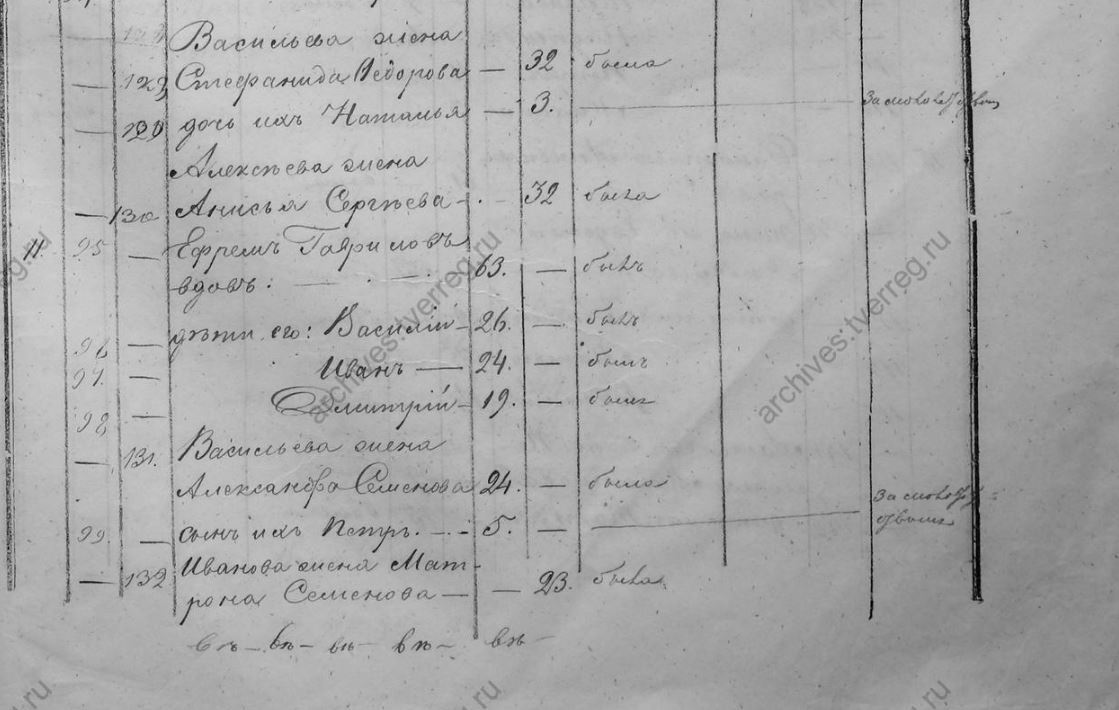 Васильева жена
— 129 Стефанида Ѳедорова — 32 была
— дочь ихъ Наталья — 3. — За малолет
Алексѣева жена
— 130 Анисья Сергѣева — 32 была
11. 95 — Ефремъ Гавриловъ
вдовъ: 63. — былъ
96 — дѣти его: Василій — 26. — былъ
97. — Иванъ — 24. — былъ
98 — Дмитрій — 19. — былъ
— 131. Васильева жена
Александра Семенова 24. — была
За малолет
99. — сынъ ихъ Петръ. — 5. —
— 132 Иванова жена Мат-
рона Семенова — — 23. была
archives.tverreg.ru
archives.tverreg.ru